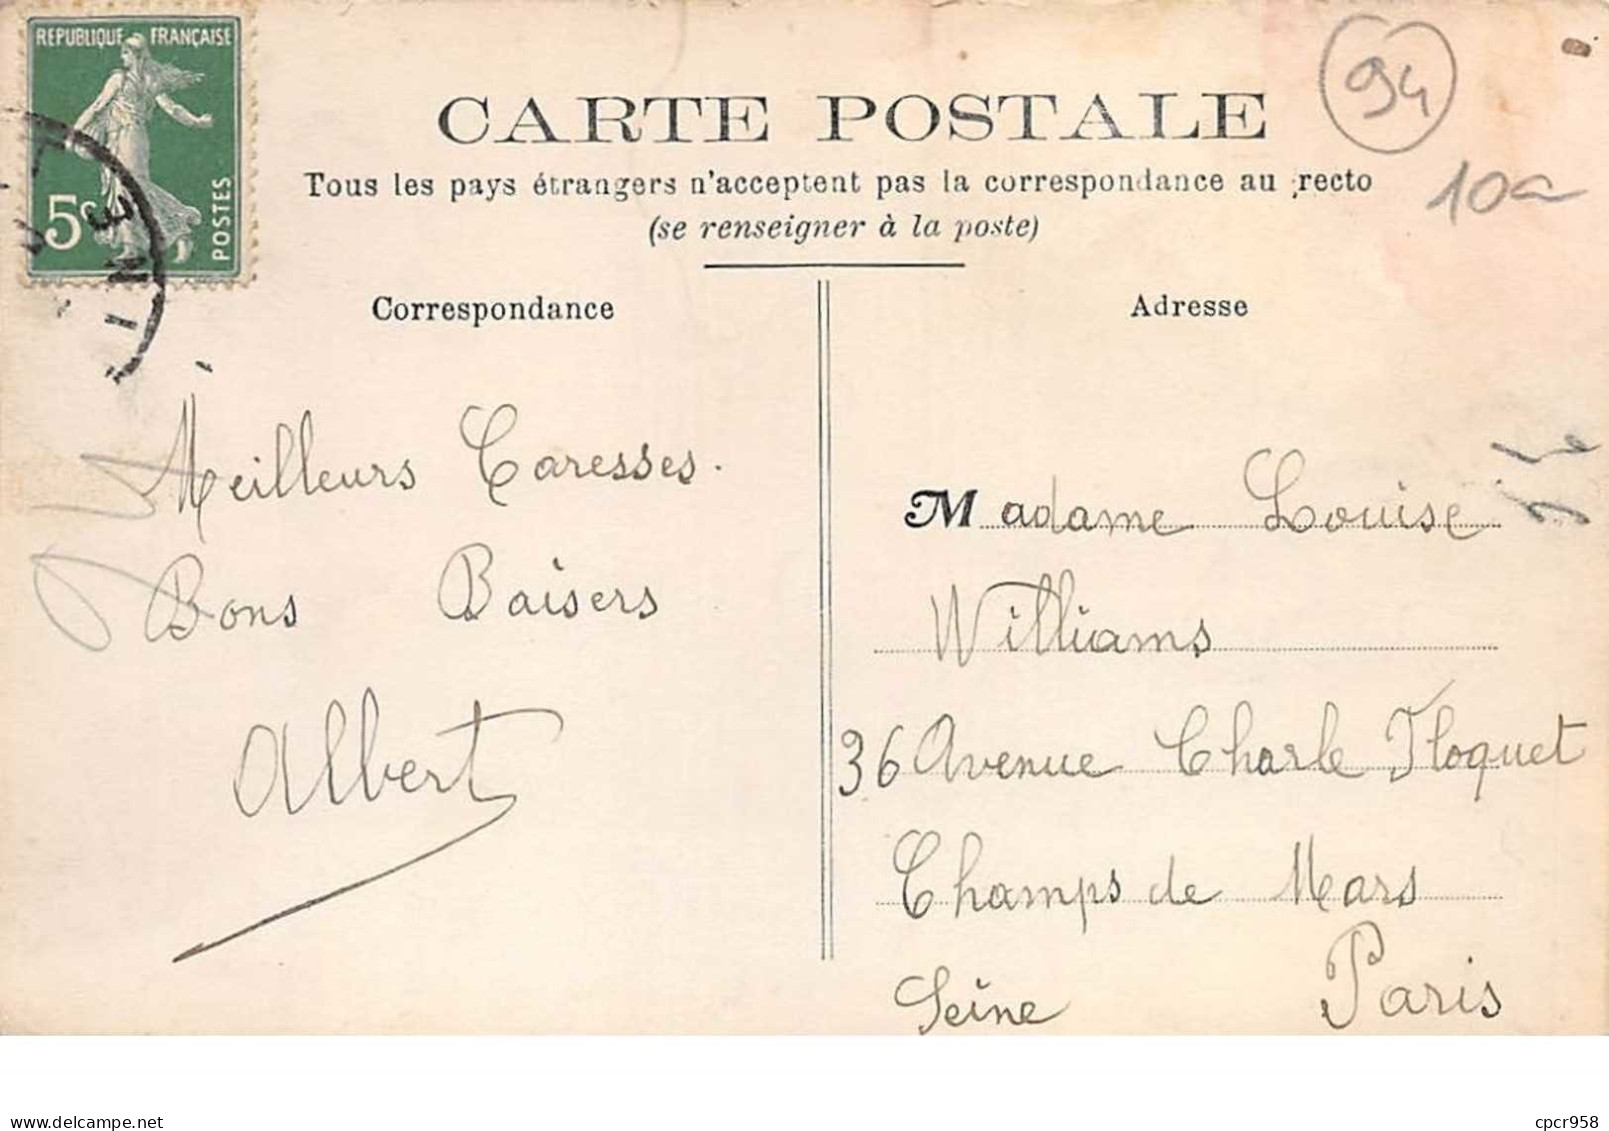 REPUBLIQUE FRANÇAISE
5c
POSTES
94
CARTE POSTALE
10a
Tous les pays étrangers n'acceptent pas la correspondance au recto
(se renseigner à la poste)
Correspondance
Meilleurs Caresses.
Bons Baisers
Albert
Adresse
Madame Louise
Williams
36 Avenue Charle Floquet
Champs de Mars
Seine Paris
cpcr958